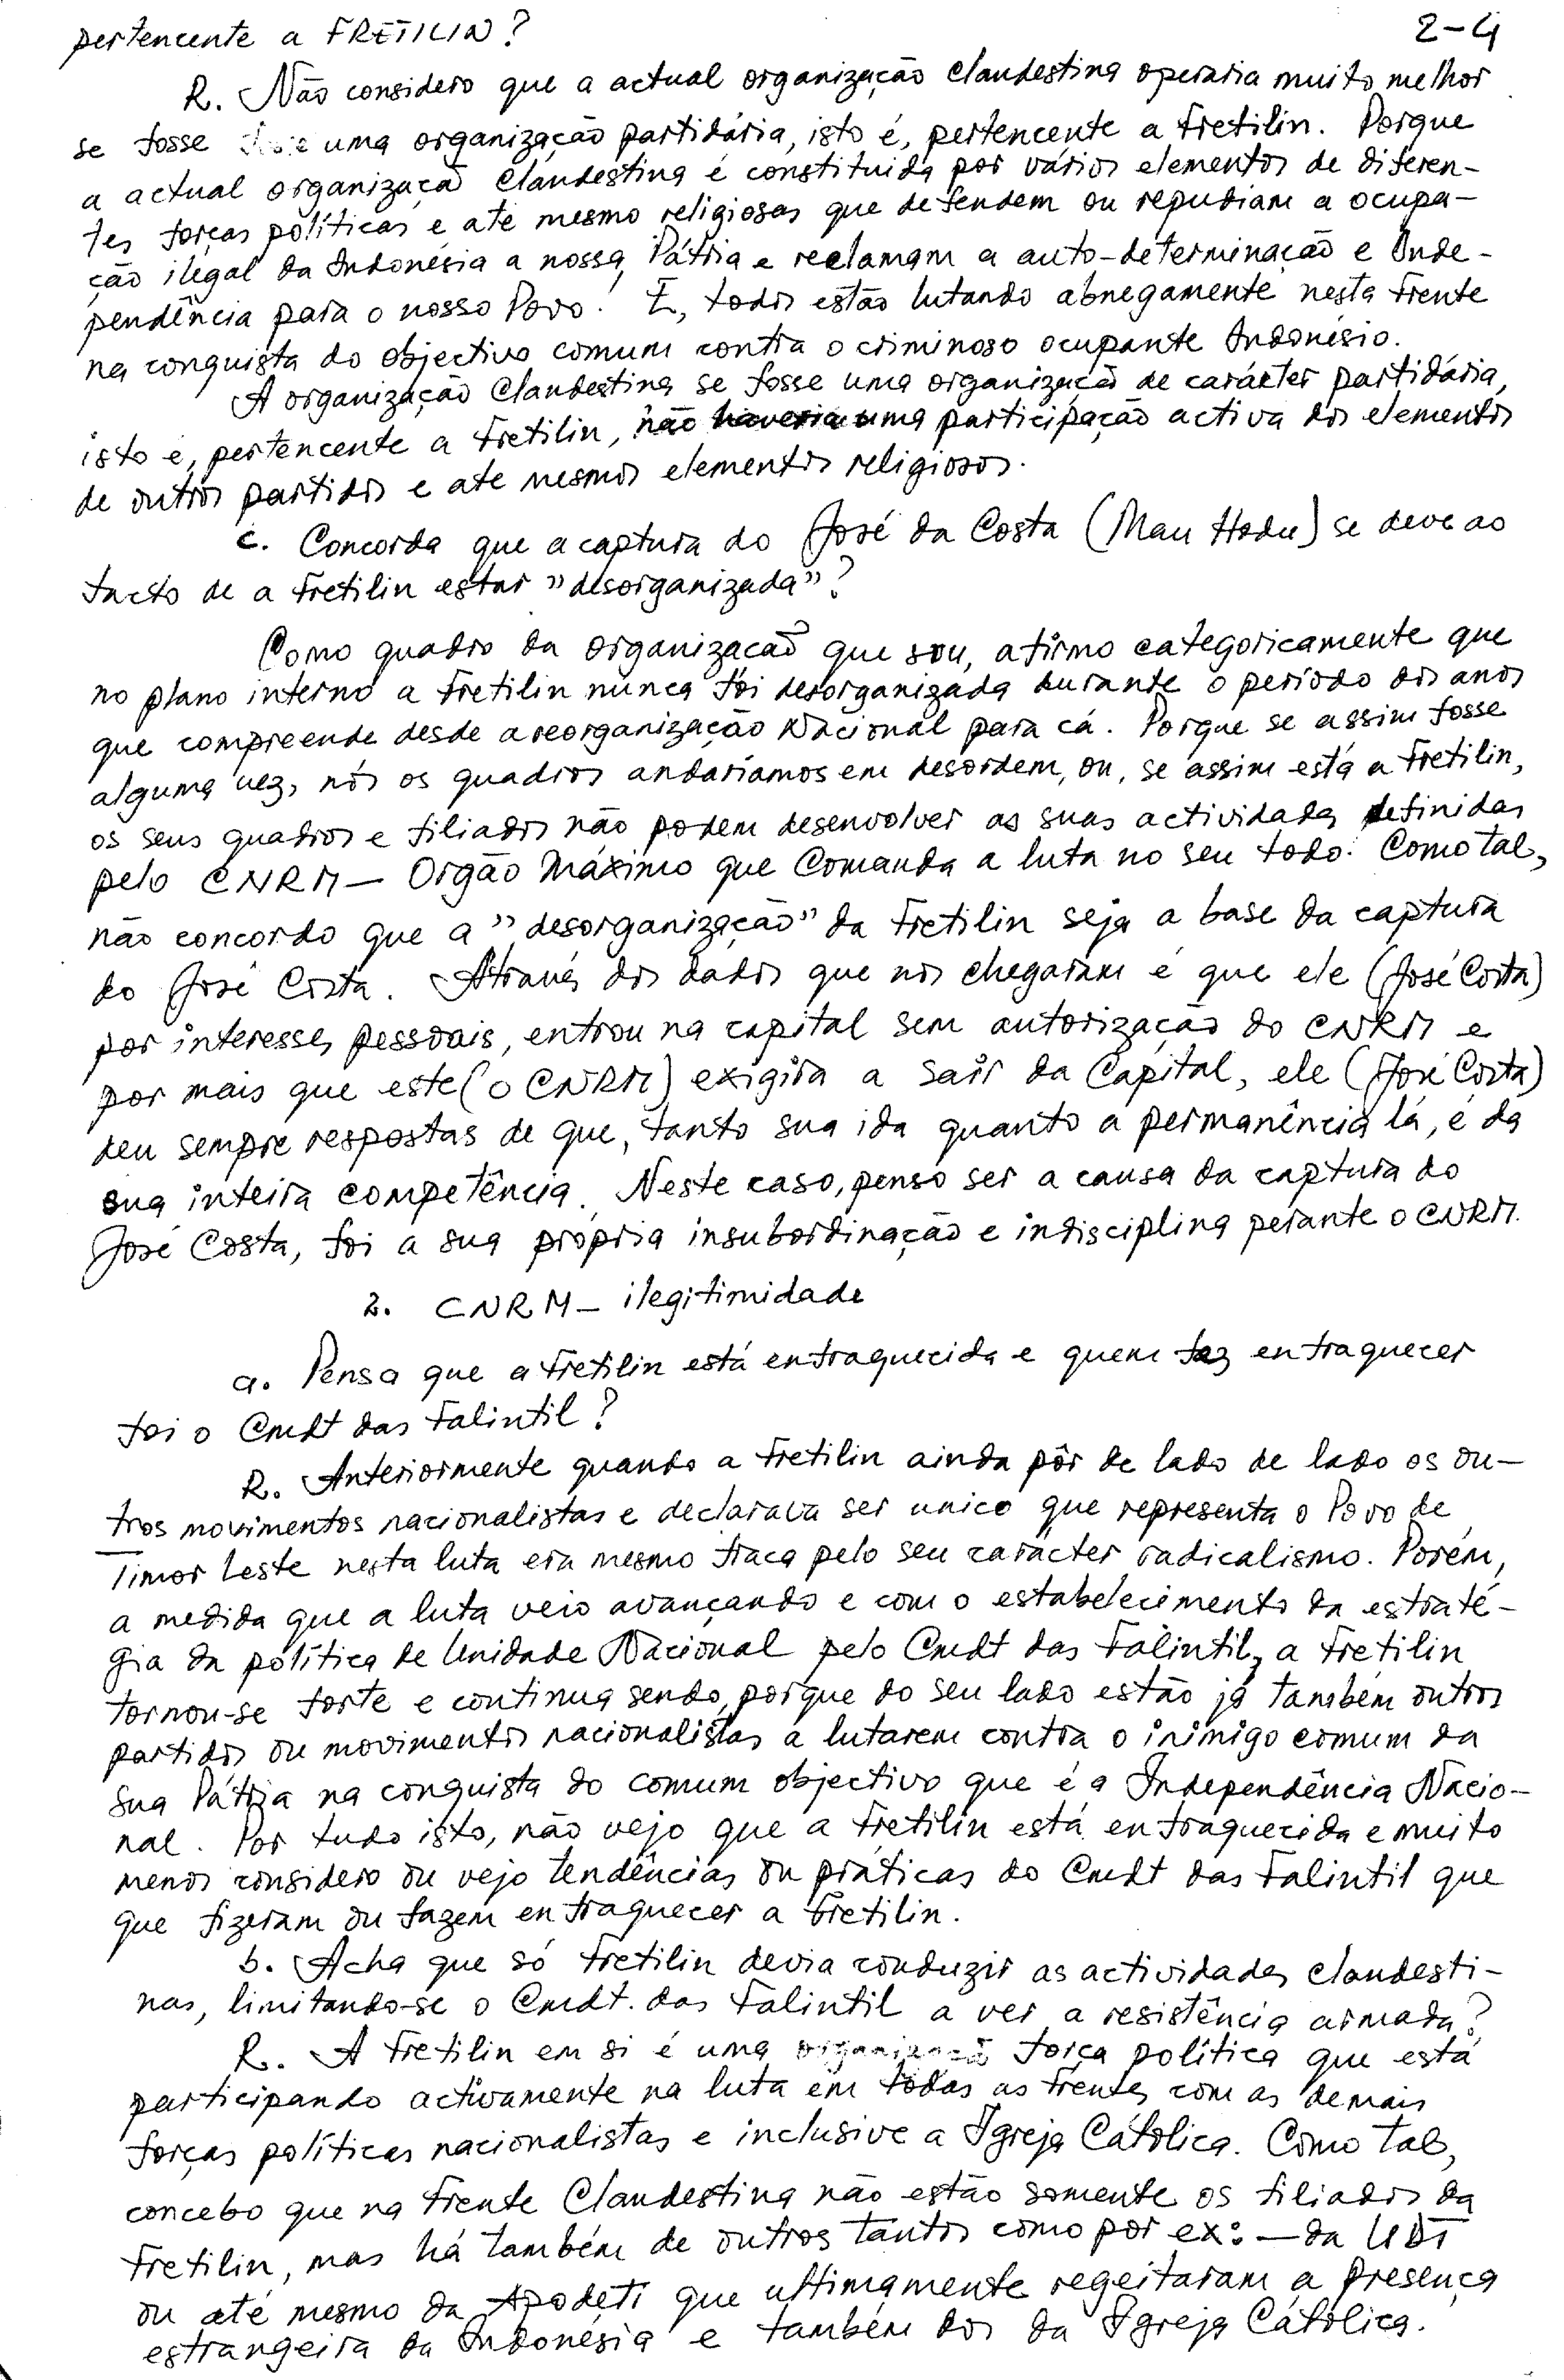 pertencente a FRETILIN?
2-4
R. Não considero que a actual organização clandestina operaria muito melhor
se fosse uma organização partidária, isto é, pertencente a Fretilin. Porque
a actual organizaçã clandestina é constituida por vários elementos de diferen-
tes forças políticas e até mesmo religiosas que defendem ou repudiam a ocupa-
ção ilegal da Indonésia a nossa Pátria e reclamam a auto-determinação e Inde-
pendência para o nosso Povo. E, todos estão lutando abnegamente nesta Frente
na conquista do objectivo comum contra o criminoso ocupante Indonésio.
A organização Clandestina se fosse uma organizaçã de carácter partidária,
isto é, pertencente a Fretilin, não haveria uma participação activa dos elementos
de outros partidos e até mesmos elementos religiosos.
c. Concorda que a captura do José da Costa (Mau Hodu) se deve ao
facto de a Fretilin estar "desorganizada"?
Como quadro da organizacão que sou, afirmo categoricamente que
no plano interno a Fretilin nunca foi desorganizada durante o período dos anos
que compreende desde a reorganização Nacional para cá. Porque se assim fosse
alguma vez, nós os quadros andaríamos em desordem, ou, se assim está a Fretilin,
os seus quadros e filiados não podem desenvolver as suas actividades definidas
pelo CNRM - Orgão Máximo que Comanda a luta no seu todo. Como tal,
não concordo que a "desorganização" da Fretilin seja a base da captura
do José Costa. Através dos dados que nos chegaram é que ele (José Costa)
por interesses pessoais, entrou na capital sem autorização do CNRM e
por mais que este (o CNRM) exigira a sair da Capital, ele (José Costa)
deu sempre respostas de que, tanto sua ida quanto a permanência lá, é da
sua inteira competência. Neste caso, penso ser a causa da captura do
José Costa, foi a sua própria insubordinação e indisciplina perante o CNRM.
2. CNRM - ilegitimidade
a. Pensa que a Fretilin está enfraquecida e quem faz enfraquecer
foi o Cmdt das Falintil?
R. Anteriormente quando a Fretilin ainda pôr de lado de lado os ou-
tros movimentos nacionalistas e declarava ser unico que representa o Povo de
Timor Leste nesta luta era mesmo fraca pelo seu carácter radicalismo. Porém,
a medida que a luta veio avançando e com o estabelecimento da estraté-
gia da política de Unidade Nacional pelo Cmdt das Falintil, a Fretilin
tornou-se forte e continua sendo, porque do seu lado estão já também outros
partidos ou movimentos nacionalistas a lutarem contra o inimigo comum da
sua Pátria na conquista do comum objectivo que é a Independência Nacio-
nal. Por tudo isto, não vejo que a Fretilin está enfraquecida e muito
menos considero ou vejo tendências ou práticas do Cmdt das Falintil que
que fizeram ou fazem enfraquecer a Fretilin.
b. Acha que só Fretilin devia conduzir as actividades clandesti-
nas, limitando-se o Cmdt. das Falintil a ver a resistência armada?
R. A Fretilin em si é uma organizaçã força política que está
participando activamente na luta em todas as frentes com as demais
forças políticas nacionalistas e inclusive a Igreja Católica. Como tal,
concebo que na Frente Clandestina não estão somente os filiados da
Fretilin, mas há também de outros tantos como por ex: - da UDT
ou até mesmo da Apodeti que ultimamente regeitaram a presença
estrangeira da Indonésia e também dos da Igreja Católica.